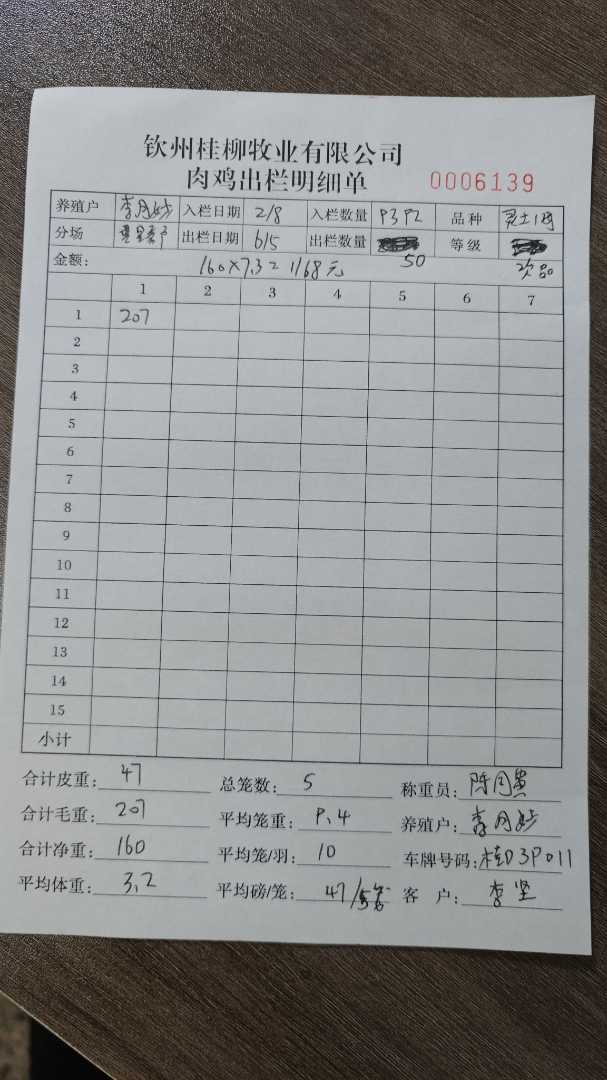 钦州桂柳牧业有限公司
肉鸡出栏明细单 0006139
养殖户 李月 入栏日期 2/8 入栏数量 9392 品种 土1
分场 出栏日期 6/5 出栏数量 50 等级 次品
金额: 160×7.3=1168元
1 2 3 4 5 6 7
1 207
2
3
4
5
6
7
8
9
10
11
12
13
14
15
小计
合计皮重: 47 总笼数: 5 称重员: 陈同贵
合计毛重: 207 平均笼重: 9.4 养殖户: 李月
合计净重: 160 平均笼/羽: 10 车牌号码: 桂D39011
平均体重: 3.2 平均磅/笼: 47/5 客 户: 李坚